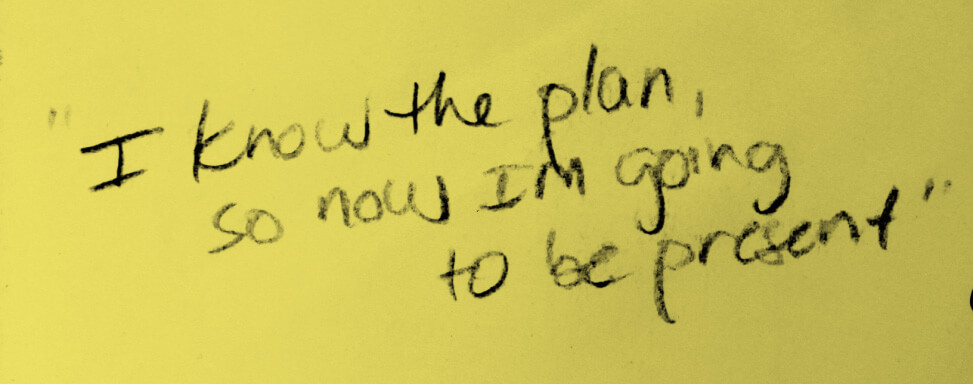 "I know the plan,
so now Im going
to be present"